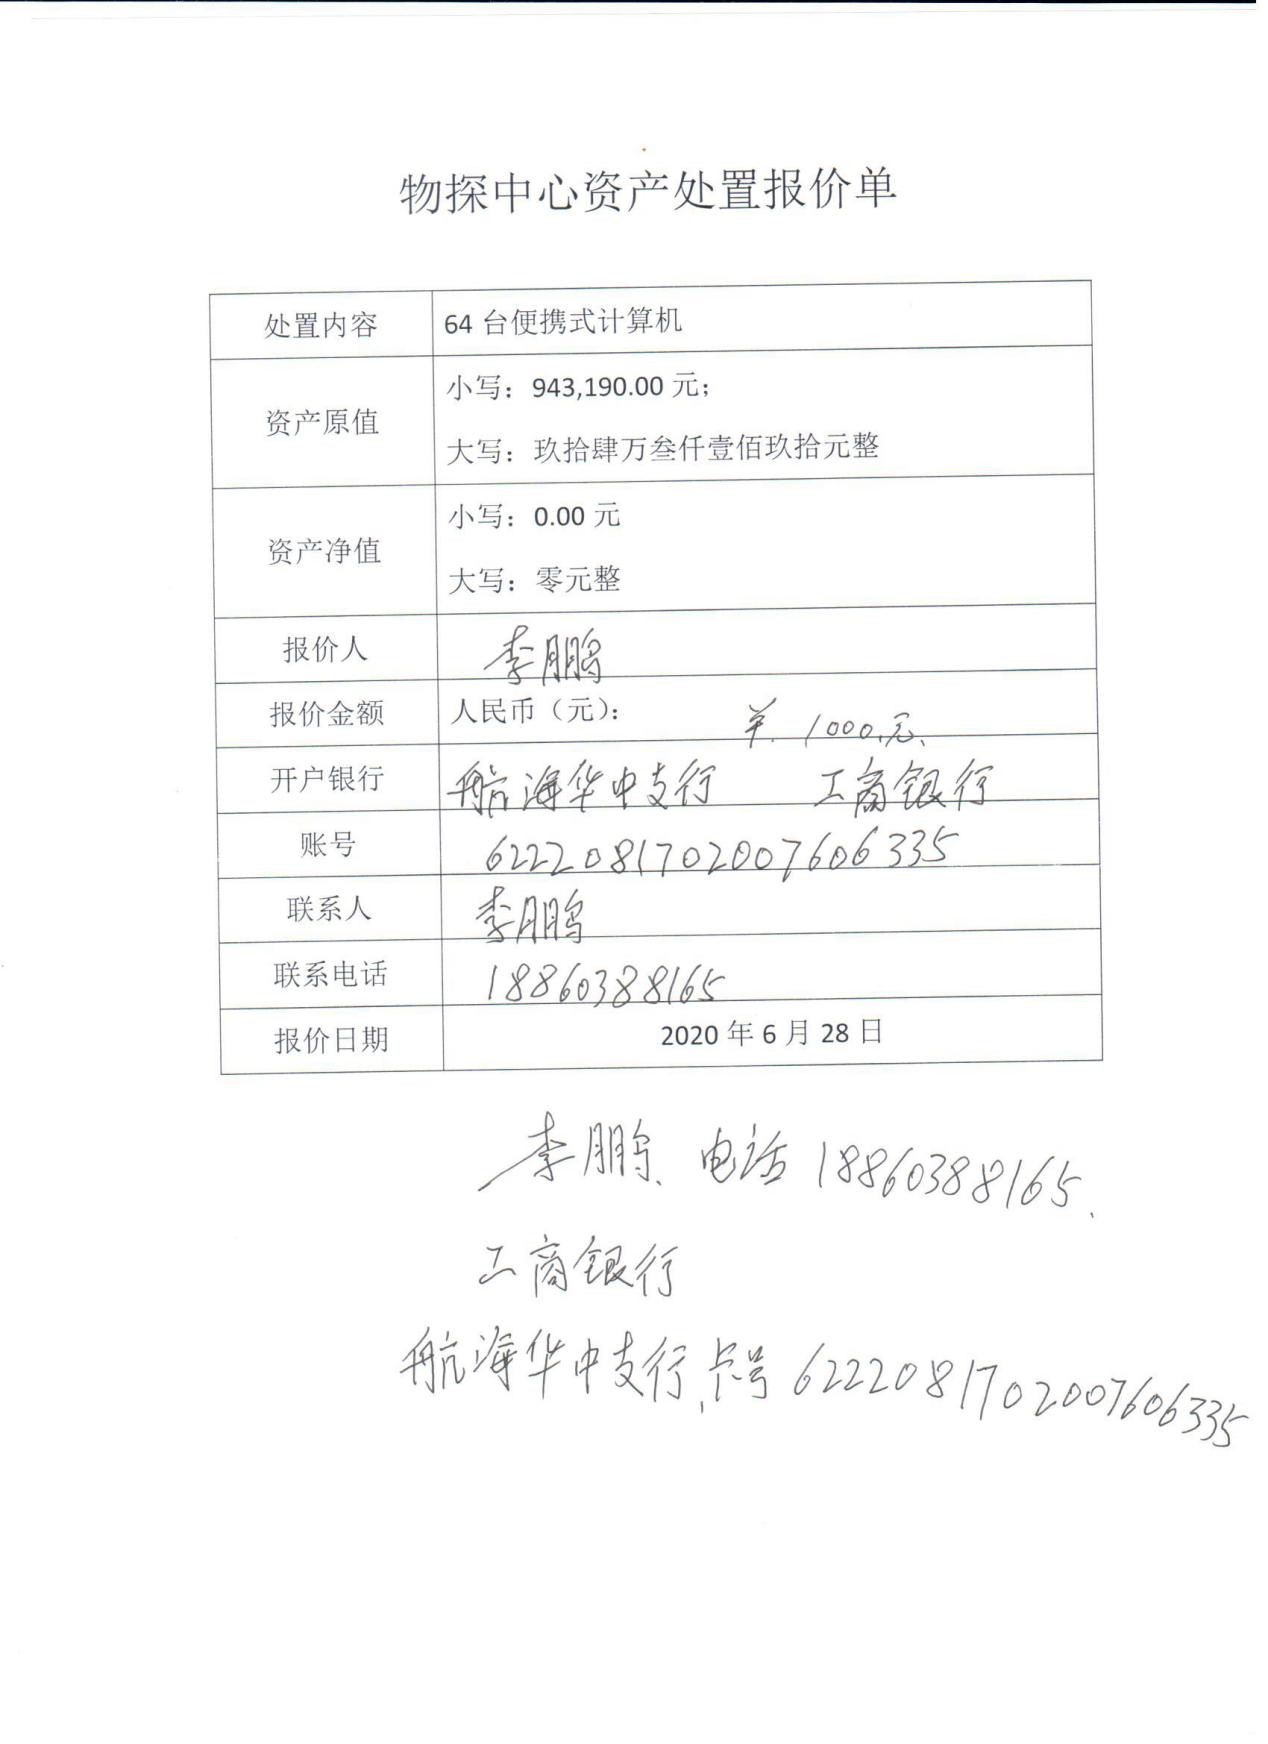 物探中心资产处置报价单
处置内容 64 台便携式计算机
资产原值 小写：943,190.00 元；
大写：玖拾肆万叁仟壹佰玖拾元整
资产净值 小写：0.00 元
大写：零元整
报价人 李鹏
报价金额 人民币（元）： 羊. 1000.元、
开户银行 航海华中支行 工商银行
账号 6222081702007606335
联系人 李鹏
联系电话 18860388165
报价日期 2020 年 6 月 28 日
李鹏、电话 18860388165、
工商银行
航海华中支行、卡号 6222081702007606335